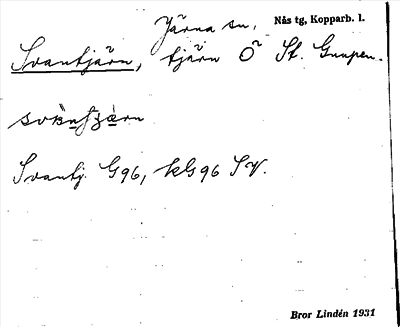 Järna sn. Nås tg, Kopparb. l.
Svantjärn, tjärn Ö St. Gunpen.
Svantj. G96, kG96 SV.
Bror Lindén 1931